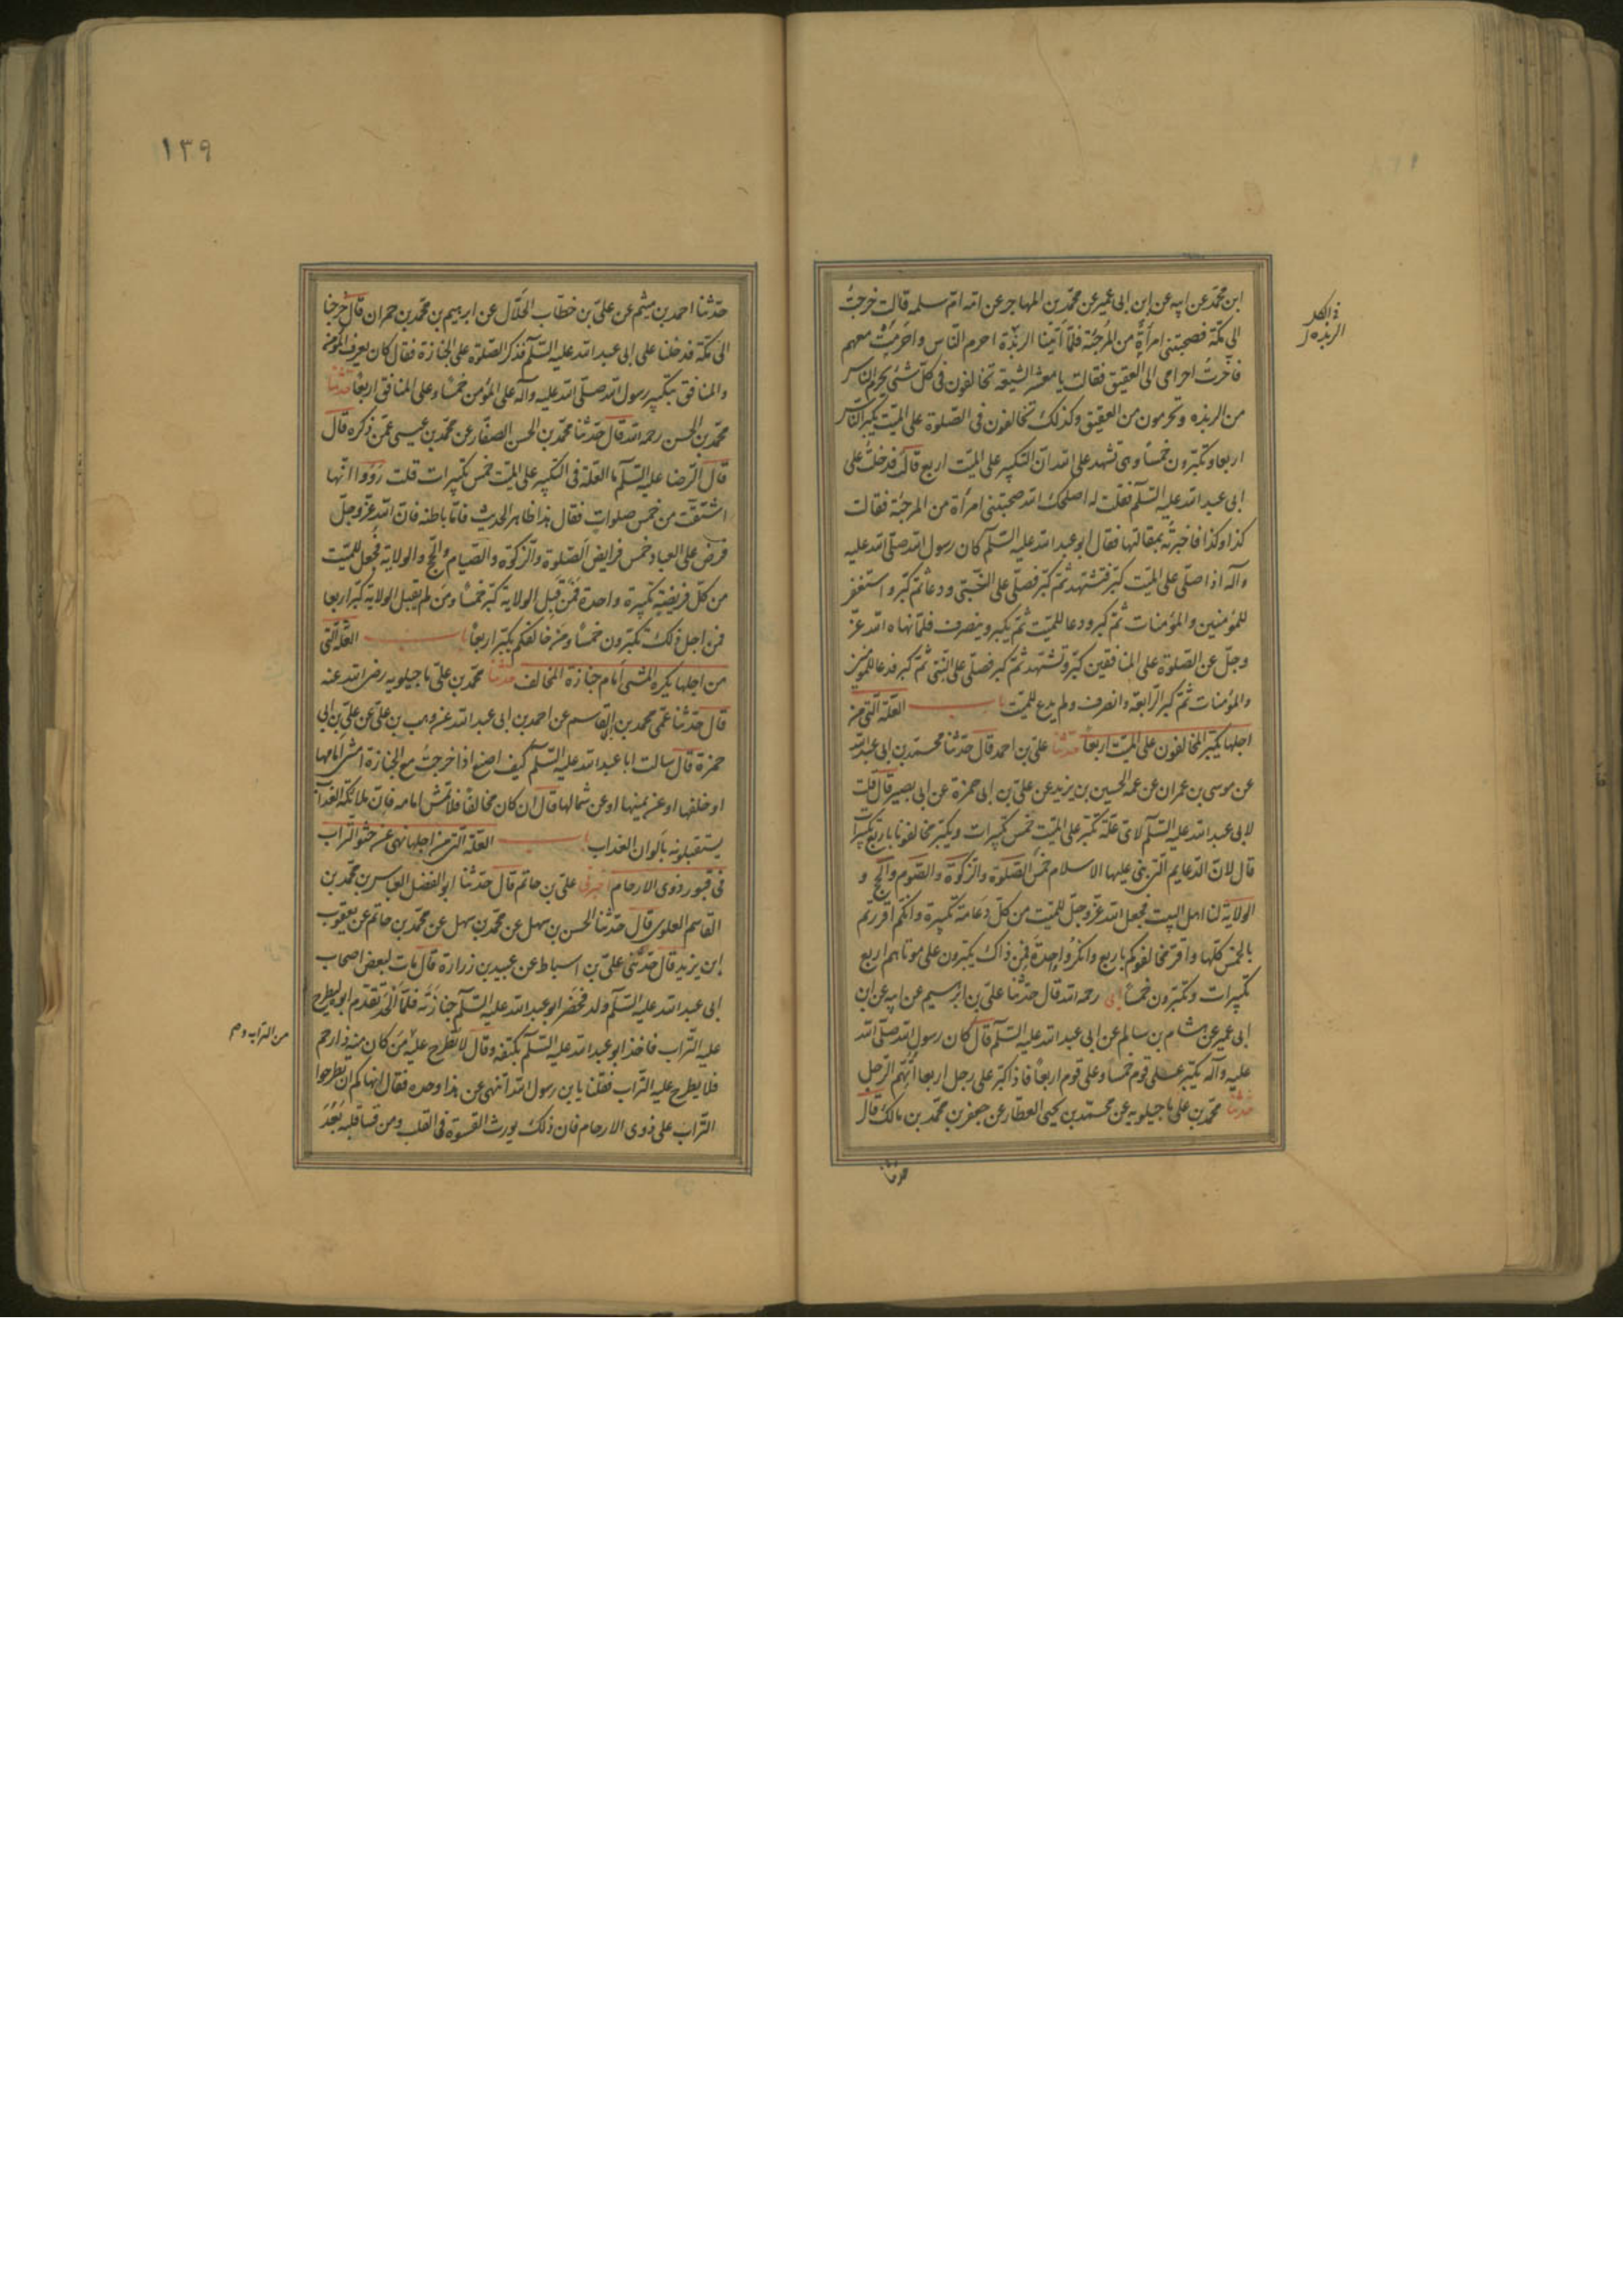 ابن محمد عن ابيه عن ابن ابى عمير عن محمد بن المهاجر عن امه ام سلمه قالت خرجت
الى مكة فصحبتنى امرأة من المرجئة فلما أتينا الربذة احرم الناس واحرمت معهم
فاخرت احرامى الى العقيق فقالت يا معشر الشيعة تخالفون فى كل شئ يحرم الناس
من الربذه وتحرمون من العقيق وكذلك تخالفون فى الصلوة على الميت يكبر الناس
اربعا وتكبرون خمسا وهى تشهد على الله ان التكبير على الميت اربع قالت فدخلت على
ابى عبد الله عليه السلم فقلت له اصلحك الله صحبتنى امرأة من المرجئة فقالت
كذا وكذا فاخبرته بمقالتها فقال ابو عبد الله عليه السلم كان رسول الله صلى الله عليه
وآله اذا صلى على الميت كبر فتشهد ثم كبر فصلى على النبى ودعا ثم كبر واستغفر
للمؤمنين والمؤمنات ثم كبر ودعا للميت ثم يكبر وينصرف فلما نهاه الله عز
وجل عن الصلوة على المنافقين كبر وتشهد ثم كبر فصلى على النبى ثم كبر فدعا للمؤمنين
والمؤمنات ثم كبر الرابعة وانصرف ولم يدع للميت باب العلة التى من
اجلها يكبر المخالفون على الميت اربعا حدثنا على بن احمد قال حدثنا محمد بن ابى عبد الله
عن موسى بن عمران عن عمه الحسين بن يزيد عن على بن ابى حمزة عن ابى بصير قال قلت
لابى عبد الله عليه السلم لاى علة تكبر على الميت خمس تكبيرات ويكبر مخالفونا باربع تكبيرات
قال لان الدعايم التى بنى عليها الاسلام خمس الصلوة والزكوة والصوم والحج و
الولاية لنا اهل البيت فجعل الله عز وجل للميت من كل دعامة تكبيرة وانكم اقررتم
بالخمس كلها واقر مخالفوكم باربع وانكروا واحدة فمن ذاك يكبرون على موتاهم اربع
تكبيرات وتكبرون خمسا ابى رحمه الله قال حدثنا على بن ابرهيم عن ابيه عن ابن
ابى عمير عن هشام بن سالم عن ابى عبد الله عليه السلم قال كان رسول الله صلى الله
عليه وآله يكبر على قوم خمسا وعلى قوم اربعا فاذا كبر على رجل اربعا اتهم الرجل
حدثنا محمد بن على ماجيلويه عن محمد بن يحيى العطار عن جعفر بن محمد بن مالك قال
حدثنا
الربذه
١٣٩
حدثنا احمد بن ميثم عن على بن خطاب الحلال عن ابرهيم بن محمد بن حمران قال خرجنا
الى مكة فدخلنا على ابى عبد الله عليه السلم فذكر الصلوة على الجنازة فقال كان يعرف المؤمن
والمنافق بتكبير رسول الله صلى الله عليه وآله على المؤمن خمسا وعلى المنافق اربعا حدثنا
محمد بن الحسن رحمه الله قال حدثنا محمد بن الحسن الصفار عن محمد بن عيسى عمن ذكره قال
قال الرضا عليه السلم ما العلة فى التكبير على الميت خمس تكبيرات قلت رووا انها
اشتقت من خمس صلوات فقال هذا ظاهر الحديث فاما باطنه فان الله عز وجل
فرض على العباد خمس فرايض الصلوة والزكوة والصيام والحج والولاية فجعل للميت
من كل فريضة تكبيرة واحدة فمن قبل الولاية كبر خمسا ومن لم يقبل الولاية كبر اربعا
فمن اجل ذلك تكبرون خمسا ومن خالفكم يكبر اربعا باب العلة التى
من اجلها يكره المشى أمام جنازة المخالف حدثنا محمد بن على ماجيلويه رضى الله عنه
قال حدثنا عمى محمد بن ابى القاسم عن احمد بن ابى عبد الله عن وهب بن على عن على بن ابى
حمزة قال سالت ابا عبد الله عليه السلم كيف اصنع اذا خرجت مع الجنازة امشى أمامها
او خلفها او عن يمينها او عن شمالها قال ان كان مخالفا فلا تمش امامه فان ملائكة العذاب
يستقبلونه بالوان العذاب باب العلة التى من اجلها نهى عن حثو التراب
فى قبور ذوى الارحام اخبرنى على بن حاتم قال حدثنا ابو الفضل العباس بن محمد بن
القاسم العلوى قال حدثنا الحسن بن سهل عن محمد بن سهل عن محمد بن حاتم عن يعقوب
ابن يزيد قال حدثنى على بن اسباط عن عبيد بن زرارة قال مات لبعض اصحاب
ابى عبد الله عليه السلم ولد فحضر ابو عبد الله عليه السلم جنازته فلما ألحد تقدم ابوه ليطرح
عليه التراب فاخذ ابو عبد الله عليه السلم بكتفه وقال لا تطرح عليه من كان منه ذا رحم
فلا يطرح عليه التراب فقلنا يا بن رسول الله اتنهى عن هذا وحده فقال انهاكم ان تطرحوا
التراب على ذوى الارحام فان ذلك يورث القسوة فى القلب ومن قسا قلبه بعد
من التراب